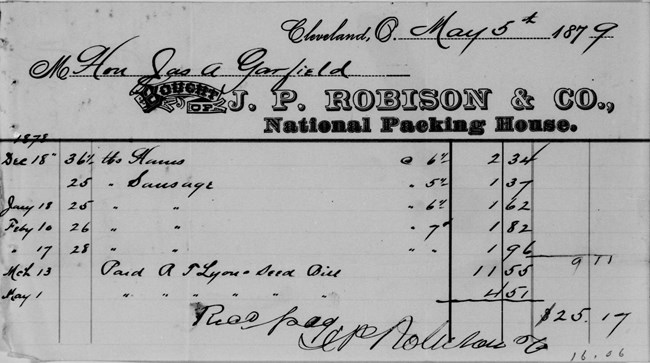 Cleveland, O. May 5th 1879
M Hon Jas A Garfield
BOUGHT OF J. P. ROBISON & CO.,
National Packing House.
1878
Dec 18" 36½ lbs Hams @ 6½ 2 34
25 " Sausage " 5½ 1 37
Jany 18 25 " " " 6½ 1 62
Feby 10 26 " " " 7" 1 82
" 17 28 " " " " 1 96
9 11
Mch 13 Paid A T Lyon Seed Bill 11 55
May 1 " " " " " " 4 51
$25.17
Recd pay J P Robison & Co
16.06